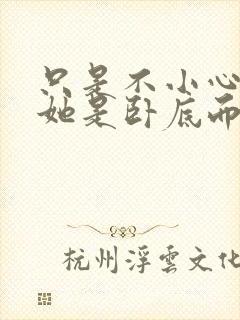 只是不小心
她是卧底而
杭州浮雲文化